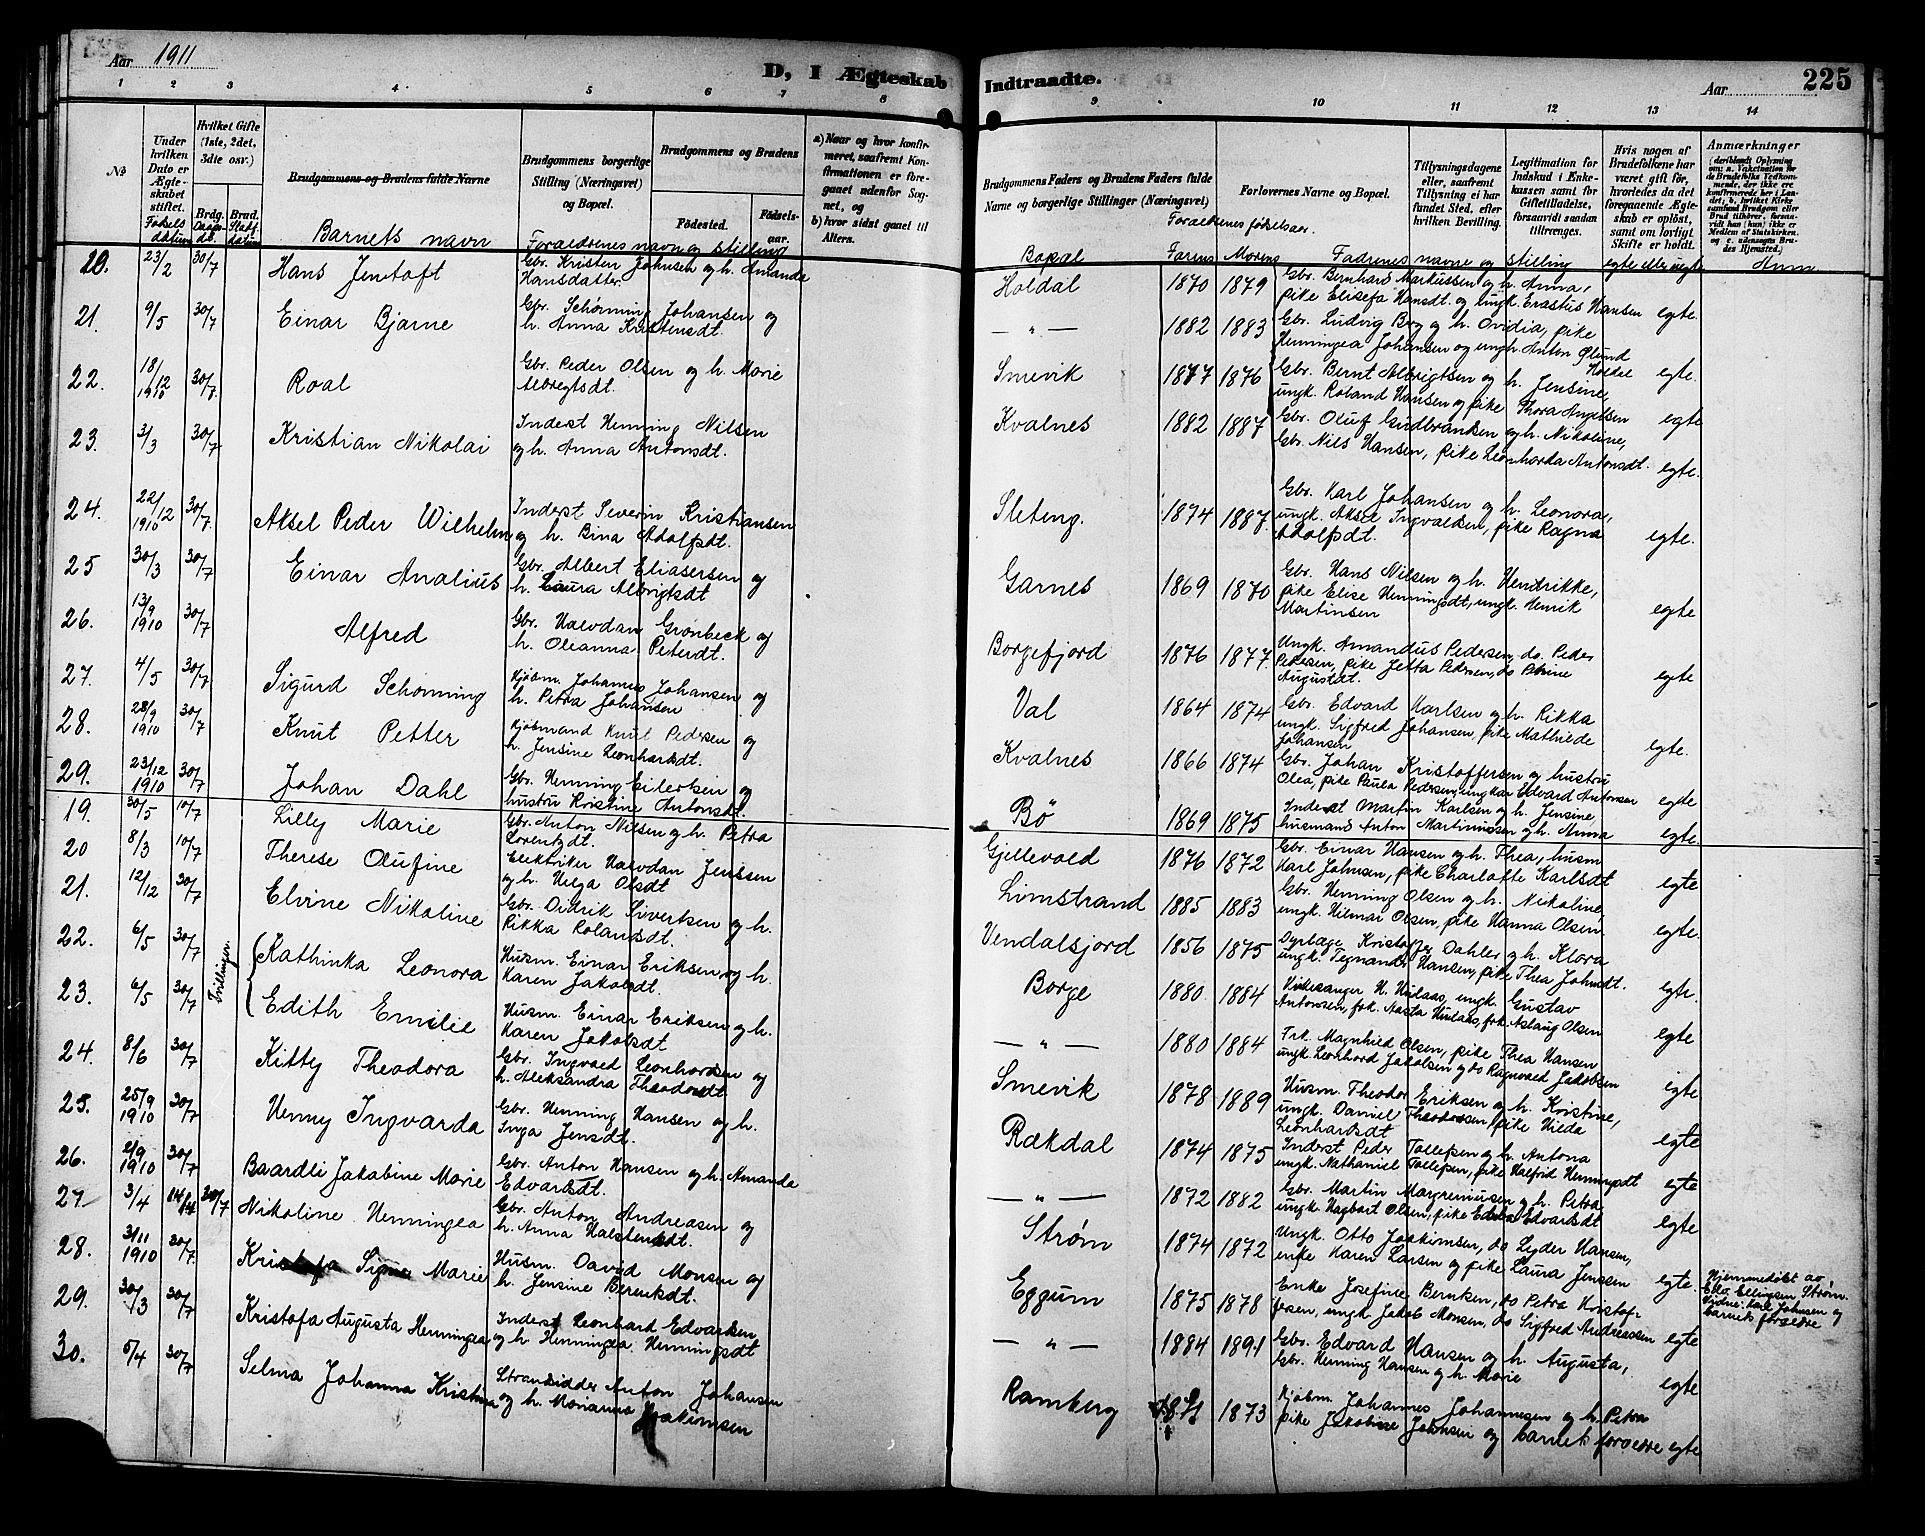 Aar 1911
D, I Ægteskab Indtraadte.
Aar 225
1 2 3 4 5 6 7 8 9 10 11 12 13 14
No
Under hvilken Dato er Ægteskabet stiftet.
Hvilket Gifte (1ste, 2det, 3die osv.)
Brdg. Brud.
Brudgommens og Brudens fulde Navne
Brudgommens borgerlige Stilling (Næringsvei) og Bopæl.
Brudgommens og Brudens
Fødested. Fødselsaar.
a) Naar og hvor konfirmeret, saafremt Konfirmationen er foregaaet udenfor Sognet, og
b) hvor sidst gaaet til Alters.
Brudgommens Faders og Brudens Faders fulde Navne og borgerlige Stillinger (Næringsvei)
Forlovernes Navne og Bopæl.
Tillysningsdagene eller, saafremt Tillysning ei har fundet Sted, efter hvilken Bevilling.
Legitimation for Indskud i Enkekassen samt for Giftetilladelse, forsaavidt saadan tiltrænges.
Hvis nogen af Brudefolkene har været gift før, hvorledes da det foregaaende Ægteskab er opløst, samt om lovligt Skifte er holdt.
Anmærkninger
Fødselsdatum Daabsdt.
Barnets navn
Forældrenes navn og stilling
Bopæl
Forældrenes fødselsaar.
Farens Morens
Fadrenes navne og stilling
egte eller uegte
Anm.
20. 23/2 30/7 Hans Jentoft
Gbr. Kristen Johnsen og h. Amanda Hansdatter
Holdal 1870 1879
Gbr. Bernhard Markussen og h. Anna, pike Elisefa Hansdt. og ungk. Erastus Hansen egte.
21. 9/5 30/7 Einar Bjarne
Gbr. Schønning Johansen og h. Anna Kristensdt.
— " — 1882 1883
Gbr. Ludvig Berg og h. Ovidia, pike Henningea Johansen og ungk. Anton Østund Holdal egte.
22. 18/12 1910 30/7 Roal
Gbr. Peder Olsen og h. Marie Albregtsdt.
Smevik 1877 1876
Gbr. Bernt Albrigtsen og h. Jensine, ungk. Roland Hansen og pike Thora Angelsen egte
23. 3/3 30/7 Kristian Nikolai
Inderst Henning Nilsen og h. Anna Antonsdt.
Kvalnes 1882 1887
Gbr. Oluf Gudbrandsen og h. Nikoline, Gbr. Nils Hansen, pike Leonharda Antonsdt. egte.
24. 22/12 1910 30/7 Aksel Peder Wilhelm
Inderst Severin Kristiansen og h. Bina Adolfsdt.
Sleteng. 1874 1887
Gbr. Karl Johansen og h. Leonora, ungk. Aksel Ingvaldsen, pike Ragna Adolfsdt. egte.
25 30/3 30/7 Einar Analius
Gbr. Albert Eliasersen og h. Laura Albrigtsdt
Garnes 1869 1870
Gbr. Hans Nilsen og h. Hendrikke, pike Elise Henningsdt, ungk. Henrik Martinsen egte
26. 13/9 1910 30/7 Alfred
Gbr. Halvdan Grønbeck og h. Oleanna Petersdt.
Borgefjord 1876 1877
Ungk. Amandus Pedersen, do. Peder Pedersen, pike Jetta Pedersen, do Petrine Augustdt. egte
27. 4/5 30/7 Sigurd Schønning
Kjøbm. Johannes Johansen og h. Petra Johansen
Val 1864 1874
Gbr. Edvard Karlsen og h. Rikka ungk. Sigfred Johansen, pike Mathilde Johansen egte.
28. 28/9 1910 30/7 Knut Petter
Kjøbmand Knut Pedersen og h. Jensine Leonhardsdt.
Kvalnes 1866 1874
Gbr. Johan Kristoffersen og hustru Olea, pike Paula Pedersen, ungkar Edvard Antonsen egte
29. 23/12 1910 30/7 Johan Dahl
Gbr. Henning Eilertsen og hustru Kristine Antonsdt.
Bø 1869 1875
Inderst Martin Karlsen og h. Jensine, husmand Anton Martinussen og h. Anna egte.
19. 30/5 10/7 Lilly Marie
Gbr. Anton Nilsen og h. Petra Lorentsdt.
Gjellevold 1876 1872
Gbr. Einar Hansen og h. Thea, husm Karl Johnsen, pike Charlotte Karlsdt egte
20 8/3 10/7 Therese Olufine
Elektriker Halvdan Jenssen og h. Helga Olsdt
Limstrand 1885 1883
Gbr. Henning Olsen og h. Nikoline, ungk. Hilmar Olsen, pike Hanna Olsen egte.
21. 12/12 30/7 Elvine Nikoline
Gbr. Didrik Sivertsen og h. Rikka Rolandsdt.
Vendalsjord 1856 1875
Dyrlæge Kristoffer Dahler og h. Klora ungk. Tegnander Hansen, pike Thea Johnsdt. egte.
22. 6/5 30/7 Tvillinger. Kathinka Leonora
Husm. Einar Eriksen og h. Karen Jakobsdt.
Borge 1880 1884
Kirkesanger H. Hudaas, ungk. Gustav Antonsen, frk. Aasta Hudaas, frk. Aslaug Olsen egte
23. 6/5 30/7 Edith Emilie
Husm. Einar Eriksen og h. Karen Jakobsdt
— " — 1880 1884
Frk. Magnhild Olsen, pike Thea Hansen ungk. Leonhard Jakobsen og do Ragnvald Jakobsen egte
24. 8/6 30/7 Kitty Theodora
Gbr. Ingvald Leonhardsen og h. Aleksandra Theodordt.
Smevik 1878 1889
Husm. Theodor Eriksen og h. Kristine, ungk. Daniel Theodorsen, pike Hilda Leonhardsdt egte
25. 25/9 1910 30/7 Henny Ingvarda
Gbr. Henning Hansen og h. Inga Jensdt.
Rækdal 1874 1875
Inderst Peder Tollefsen og h. Antona ungk. Nathaniel Tollefsen, pike Halfrid Henningsdt egte
26. 2/9 1910 30/7 Baardli Jakabine Marie
Gbr. Anton Hansen og h. Amanda Edvardsdt.
— " — 1872 1882
Gbr. Martin Margremusen og h. Petra, ungk. Hagbart Olsen, pike Edela Edvardsdt egte
27 3/4 14/4 30/7 Nikoline Henningea
Gbr. Anton Andreasen og h. Anna Halstensdt.
Strøm 1874 1872
Ungk. Otto Joakimsen, do Lyder Hansen, enke Karen Larsen og pike Laura Jenssen egte.
Hjemmedøbt av Edv. Ellingsen Strøm. Vidne: Karl Johnsen og barnets forældre
28. 3/11 1910 30/7 Kristofa Signe Marie
Husm. David Monsen og h. Jensine Berentsdt.
Eggum 1875 1878
Enke Josefine Berntsen, do Petra Kristoffersen, ungk. Jakob Monsen, do Sigfred Andreassen egte
29. 30/3 30/7 Kristofa Augusta Henningea
Inderst Leonhard Edvardsen og h. Henningea Henningsdt
— " — 1884 1891
Gbr. Edvard Hansen og h. Augusta, Gbr. Henning Hansen og h. Marie egte
30. 5/4 30/7 Selma Johanna Kristina
Strandsidder Anton Johansen og h. Marianna Joakimsen
Ramberg 1871 1873
Kjøbm. Johannes Johannesen og h. Petra pike Jakobine Johnsen og barnets forældre egte